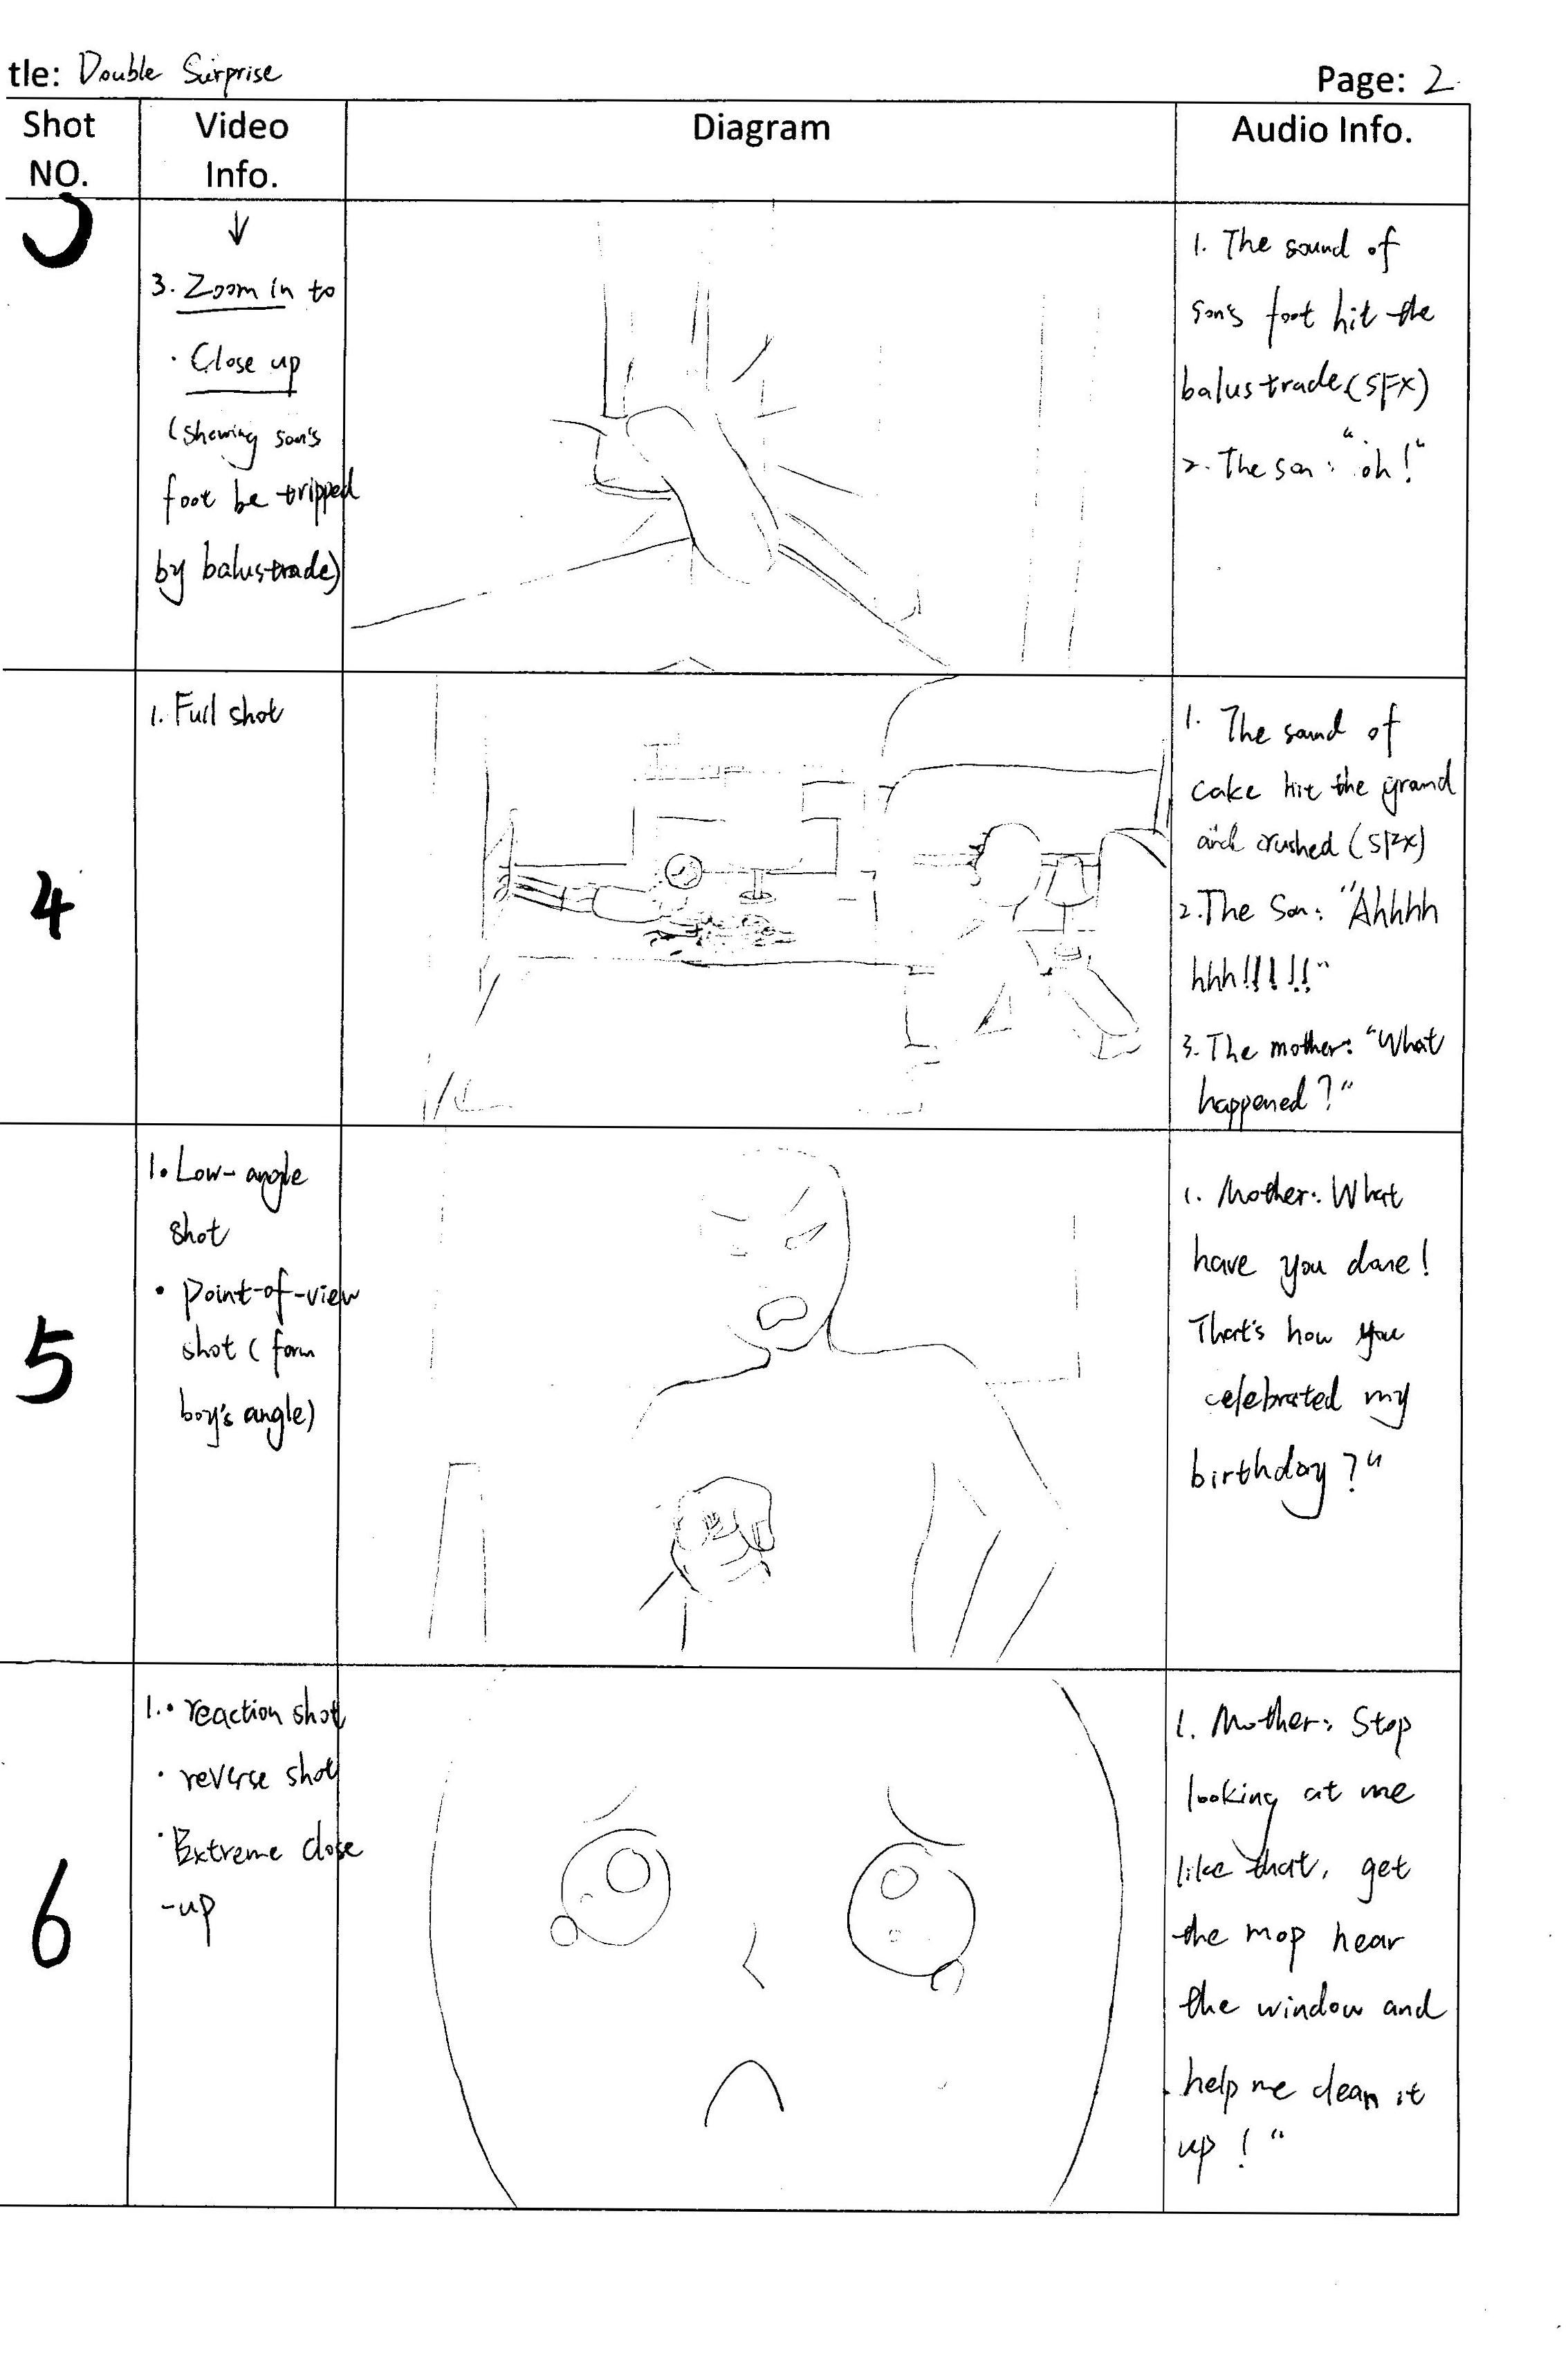 tle: Double Surprise
Page: 2
Shot NO.
Video Info.
Diagram
Audio Info.
↓
3. Zoom in to
· Close up
(showing son's
foot be tripped
by balustrade)
1. The sound of
son's foot hit the
balustrade (SFX)
2. The son: "oh!"
4
1. Full shot
1. The sound of
cake hit the grand
and crushed (SFX)
2. The Son: "Ahhhh
hhh!!!!!"
3. The mother: "What
happened?"
5
1. Low-angle
shot
· Point-of-view
shot (form
boy's angle)
1. Mother: What
have you done!
That's how you
celebrated my
birthday?"
6
1. · reaction shot
· reverse shot
· Extreme close
-up
1. Mother: Stop
looking at me
like that, get
the mop near
the window and
help me clean it
up!"